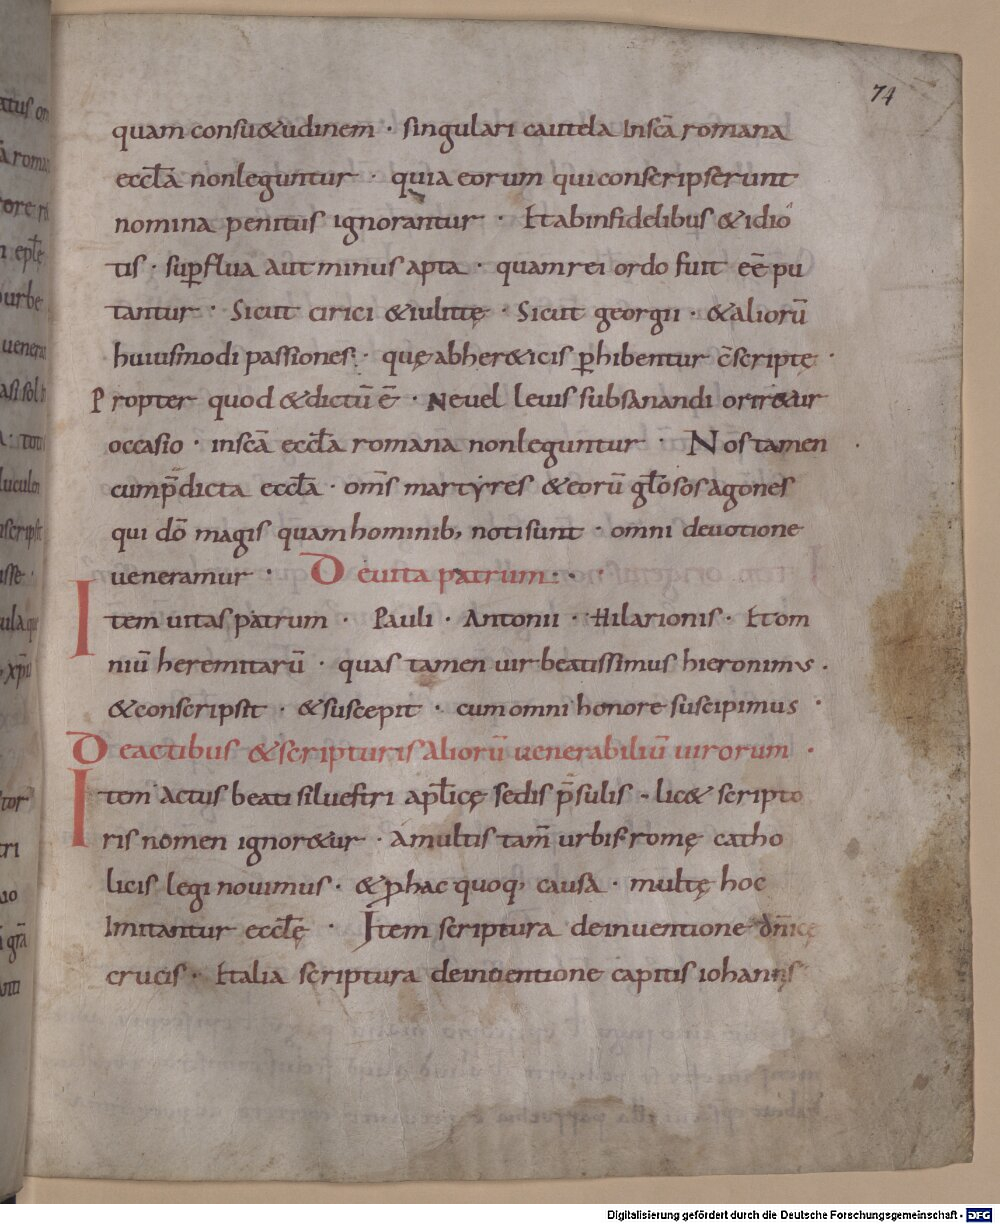 74
quam consu&udinem · singulari cautela Inscā romana
eccłā nonleguntur · quia eorum quiconscripserunt
nomina penitus ignorantur · Etabinfidelibus & idio
tis · suꝑflua aut minus apta · quamrei ordo fuit eē pu
tantur · Sicut cirici & iulittę · Sicut georgii · & aliorū
huiusmodi passiones · quę abher&icis ꝑhibentur c̄scriptę ·
Propter quod & dictū ē · Nevel levis subsanandi orir&ur
occasio · inscā eccła romana nonleguntur · Nos tamen
cump̄dicta eccłā · om̄s martyres & eorū gło̅sos agones
qui dō magis quam hominib; noti sunt · omni devotione
ueneramur · De uita patrum ·
Item uitas patrum · Pauli · Antonii · Hilarionis · Etom
niū heremitarū · quas tamen uir beatissimus hieronimus ·
& conscripsit · & suscepit · cum omni honore suscipimus ·
De actibus & scripturis aliorū uenerabiliū uirorum ·
Item actus beati siluestri apłicę sedis p̄sulis · lic& scripto
ris nomen ignor&ur · A multis tam̄ urbis romę catho
licis legi nouimus · & ꝓ hac quoq; causa · multę hoc
Imitantur eccłę · Item scriptura de inuentione dn̄icę
crucis · Et alia scriptura de inuentione capitis iohannis
Digitalisierung gefördert durch die Deutsche Forschungsgemeinschaft - DFG